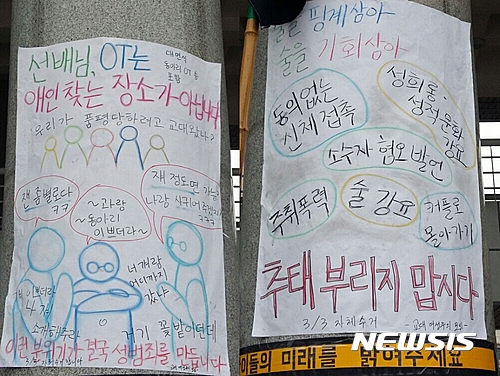 선배님, OT는
대면식
동아리 OT 등
포함
애인 찾는 장소가 아닙니다
"우리가 품평당하려고 고대왔나?"
걘 좀 별로다
ㅋㅋ
~과랑
~동아리
이쁘더라~
쟤 정도면 가능
나랑 사귀어
ㅋㅋㅋ
걔 이쁘더라
소개해주라
너 걔랑
어디까지
갔냐
거기 꽃밭이던데
이런 분위기가 결국 성범죄를 만듭니다
술을 핑계삼아
술을 기회삼아
동의없는
신체접촉
성희롱·
성적문란
강요
소수자 혐오 발언
주취폭력
술 강요
커플로
몰아가기
추태 부리지 맙시다
3/3 자체수거
NEWSIS
이들의 미래를 밝혀주세요